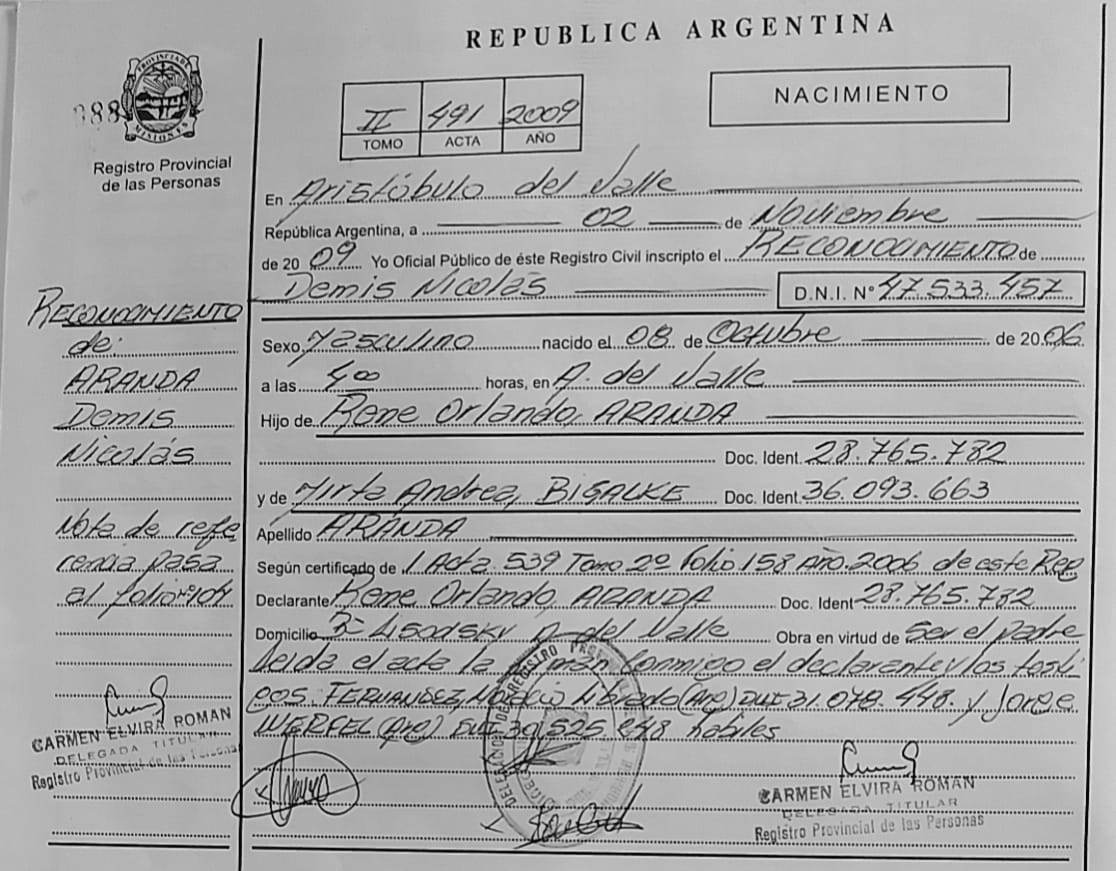 REPUBLICA ARGENTINA
NACIMIENTO
II 491 2009
TOMO ACTA AÑO
088
PROVINCIA DE MISIONES
Registro Provincial
de las Personas
En Aristóbulo del Valle
República Argentina, a 02 de Noviembre
de 2009 Yo Oficial Público de éste Registro Civil inscripto el RECONOCIMIENTO de
Demis Nicolás D.N.I. N° 47.533.457
Sexo Masculino nacido el 08 de Octubre de 2006
a las 4 00 horas, en A. del Valle
Hijo de Rene Orlando, ARANDA
Doc. Ident. 28.765.732
y de Mirta Andrea, BISALKE Doc. Ident. 36.093.663
Apellido ARANDA
Según certificado de Acta 539 Tomo 2º Folio 158 Año 2006 de este Reg
Declarante Rene Orlando, ARANDA Doc. Ident 28.765.732
Domicilio Bº A. del Valle Obra en virtud de Ser el padre
Leida el acta la firman conmigo el declarante y los testi
gos. FERNANDEZ, Librado (Arg) DNI 31.078.448. y Jorge
WERFEL (Arg) DNI 30.525. habiles
RECONOCIMIENTO
de:
ARANDA
Demis
Nicolás
Nota de refe
rencia pasa
al folio
CARMEN ELVIRA ROMAN
DELEGADA TITULAR
Registro Provincial de las Personas
CARMEN ELVIRA ROMAN
DELEGADA TITULAR
Registro Provincial de las Personas